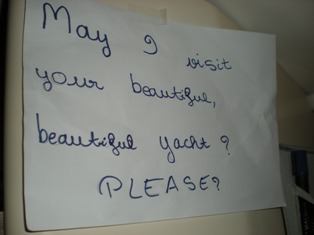 May I visit
your beautiful,
beautiful yacht?
PLEASE?